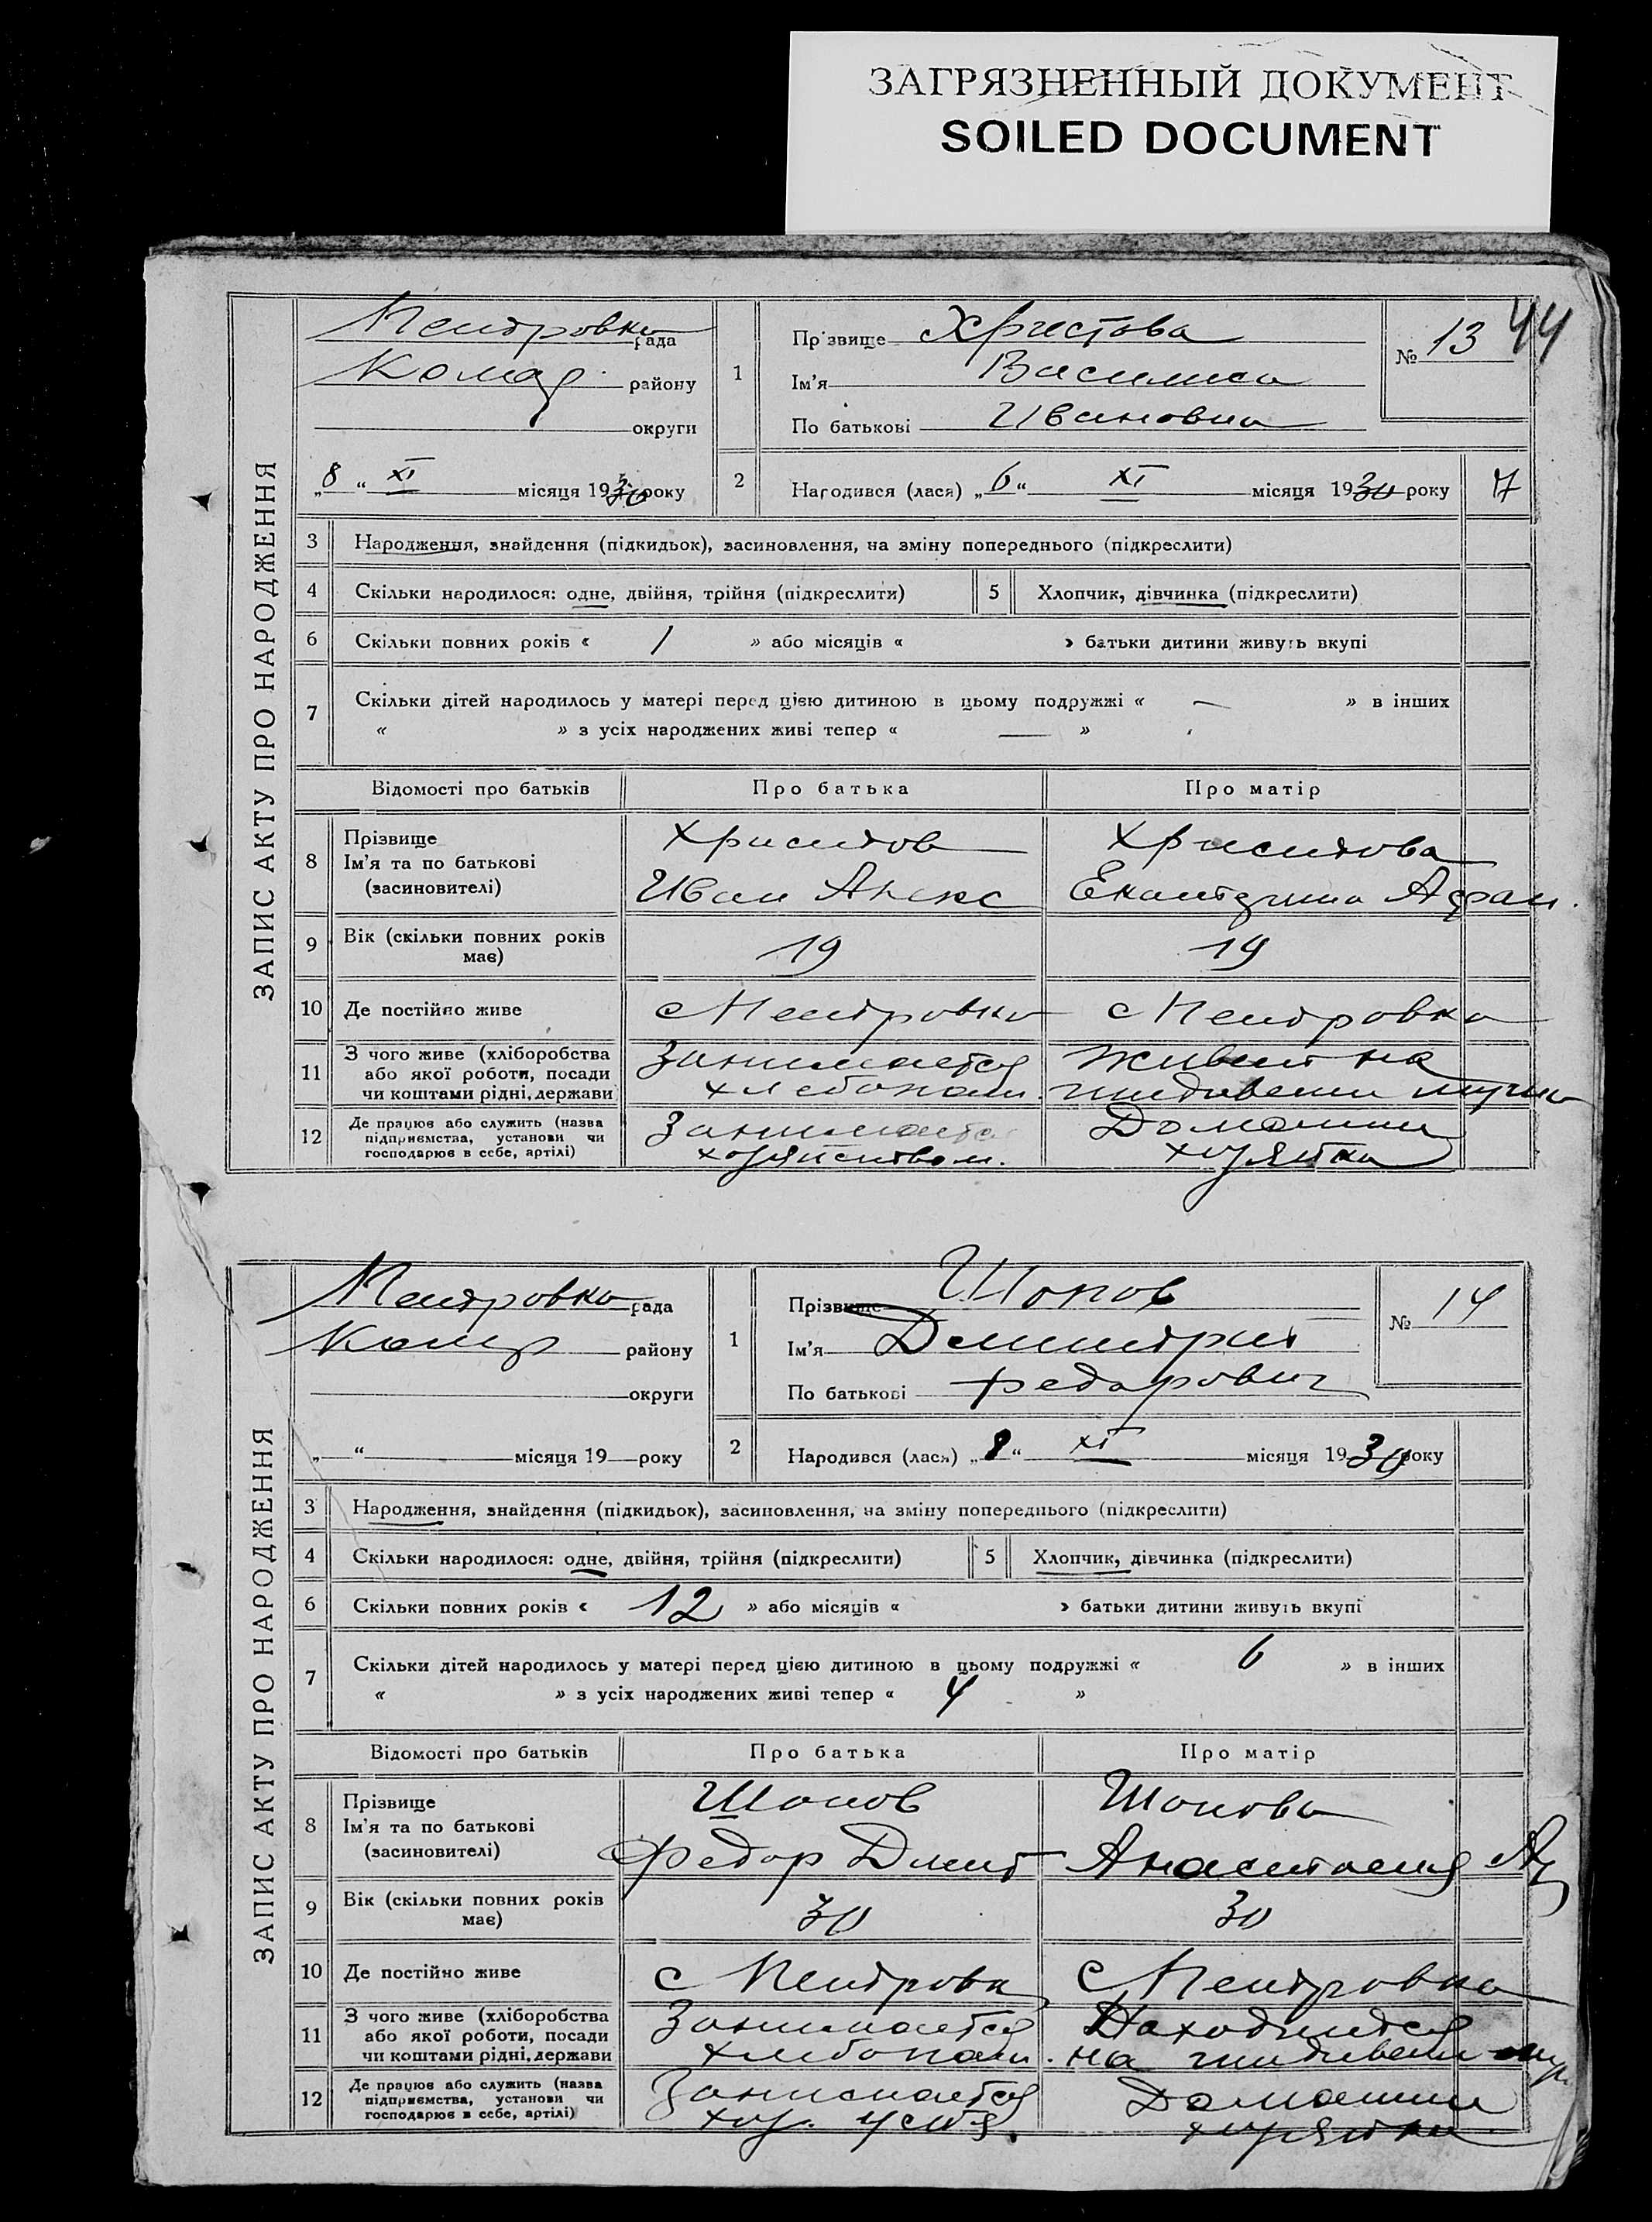 ЗАГРЯЗНЕННЫЙ ДОКУМЕНТ
SOILED DOCUMENT
44
ЗАПИС АКТУ ПРО НАРОДЖЕННЯ
Петровка рада
Комар району
округи
„8“ XI місяця 1930 року
1
Прізвище Христова
Ім'я Василиса
По батькові Ивановна
№ 13
2
Народився (лася) „6“ XI місяця 1930 року
3 Народження, знайдення (підкидьок), засиновлення, на зміну попереднього (підкреслити)
4 Скільки народилося: одне, двійня, трійня (підкреслити)
5 Хлопчик, дівчинка (підкреслити)
6 Скільки повних років « 1 » або місяців « » батьки дитини живуть вкупі
7 Скільки дітей народилось у матері перед цією дитиною в цьому подружжі « — » в інших
« » з усіх народжених живі тепер « — »
Відомості про батьків Про батька Про матір
8 Прізвище Христов Христова
Ім'я та по батькові
(засиновителі) Иван Алекс Екатерина Афан.
9 Вік (скільки повних років
має) 19 19
10 Де постійно живе с Петровка с Петровка
11 З чого живе (хліборобства Занимается Живет на
або якої роботи, посади
чи коштами рідні, держави хлебопаш. иждивении мужа
12 Де працює або служить (назва Занимается Домашни
підприємства, установи чи
господарює в себе, артілі) хозяйством. хозяйка
ЗАПИС АКТУ ПРО НАРОДЖЕННЯ
Петровка рада
Комар району
округи
„ “ місяця 19 року
1
Прізвище Шопов
Ім'я Дмитрий
По батькові Федарович
№ 14
2
Народився (лася) „8“ XI місяця 1930 року
3 Народження, знайдення (підкидьок), засиновлення, на зміну попереднього (підкреслити)
4 Скільки народилося: одне, двійня, трійня (підкреслити)
5 Хлопчик, дівчинка (підкреслити)
6 Скільки повних років « 12 » або місяців « » батьки дитини живуть вкупі
7 Скільки дітей народилось у матері перед цією дитиною в цьому подружжі « 6 » в інших
« » з усіх народжених живі тепер « 4 »
Відомості про батьків Про батька Про матір
8 Прізвище Шопов Шопова
Ім'я та по батькові
(засиновителі) Федор Дмит Анастасия
9 Вік (скільки повних років
має) 30 30
10 Де постійно живе с Петровк с Петровка
11 З чого живе (хліборобства Занимается Находится
або якої роботи, посади
чи коштами рідні, держави хлебопаш. на иждивении муж.
12 Де працює або служить (назва Занимается Домашни
підприємства, установи чи
господарює в себе, артілі) хоз. хозяйка